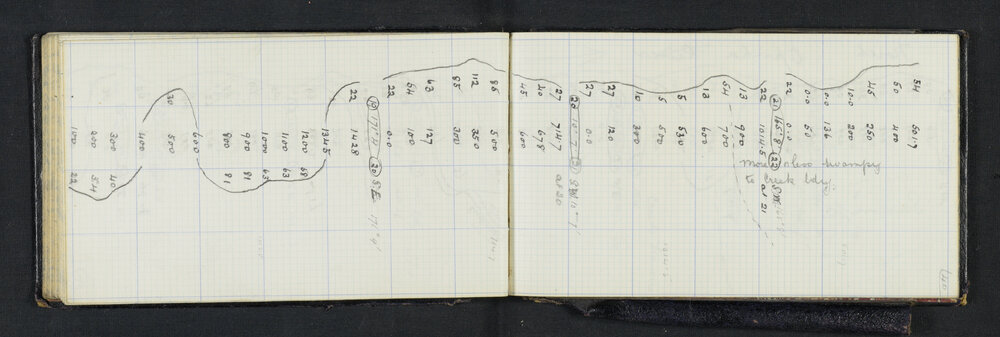 54 50.7
50 400
45 250
100 200
0.0 136
0.0 50
22 0.0
(21) 165°8' (22) S.W.
22 1014.5 at 21
13 900
54 700
13 600
5 530
5 500
10 300
27 120
27 0.0
(20)
27 714.7 at 20
40 678
45 600
more or less swampy
to Creek bdy
86 500
112 350
85 300
63 127
54 100
22 0.0
(19) 171°4' (20) S.E.
22 1428
1345
1200 68
1100 63
1000 63
900 81
800 81
600
30 500
400
300 40
200 54
100 22